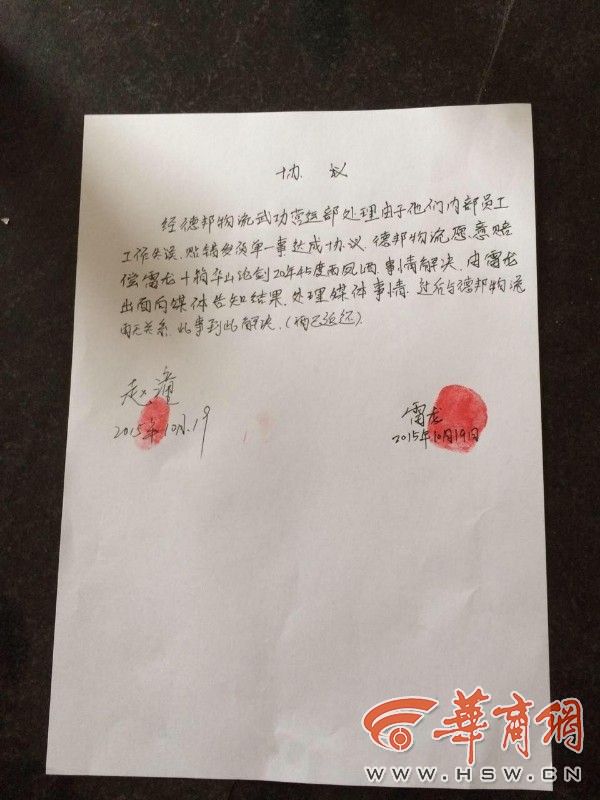 协 议
经德邦物流武功营运部处理由于他们内部员工
工作失误,贴错货源单一事达成协议.德邦物流愿意赔
偿雷龙十箱华山论剑20年45度西凤酒.事情解决.由雷龙
出面向媒体告知结果.处理媒体事情.过后与德邦物流
再无关系.此事到此解决.(酒已返还).
赵
2015年10月.19
雷龙
2015年10月19日
華商網
WWW.HSW.CN